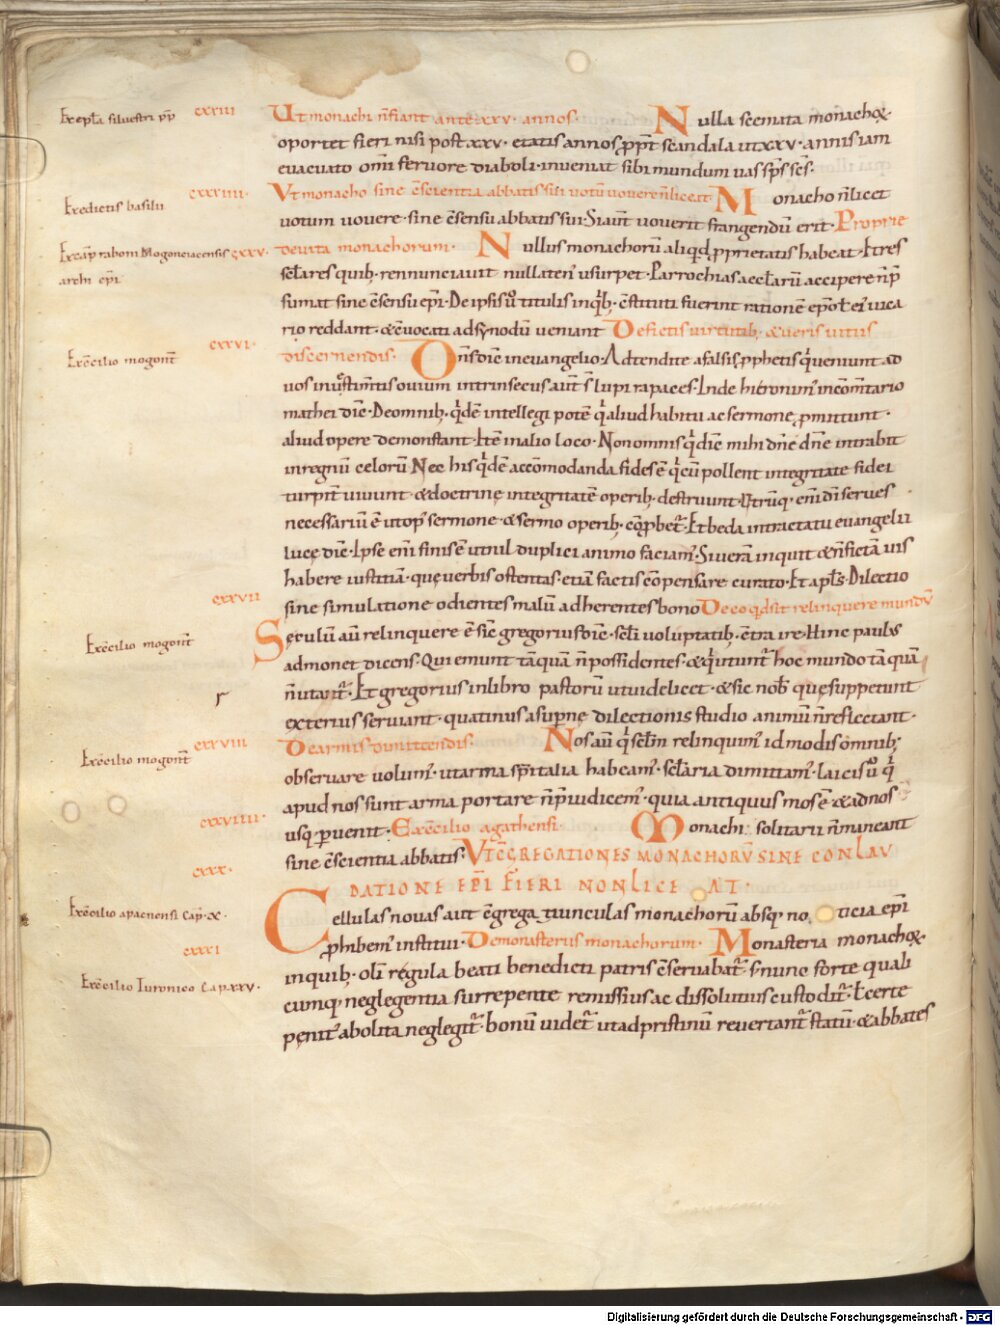 Ex epła siluestri pp̄ cxxiii Ut monachi n̄ fiant ante xxv · annos · Nulla secmata monachoꝝ
oportet fieri nisi post xxv · etatis annos ꝓpt̄ scandala ut xxv · annis iam
euacuato om̄i feruore diaboli · inueniat sibi mundum uas sp̄s sc̄s ·
Ex edictis basilii cxxiiii · Vt monacho sine c̄scientia abbatis sui uotū uouere n̄ liceat Monacho n̄ licet
uotum uouere · sine c̄sensu abbatis sui · Si aut̄ uouerit frangendū erit · Proprie
Ex cap̄ rabani Mogonciacensis archi ep̄i · cxxv · de uita monachorum · Nullus monachorū aliqd ꝓprietatis habeat · Et res
sc̄lares quib; rennunciauit nullaten' usurpet · Parrochias aecl̄arū accipere n̄ p̄
sumat sine c̄sensu ep̄i · De ipsis ū titulis in qb; c̄stituti fuerint rationē ep̄o ł ei' uica
rio reddant · & c̄uocati ad synodū ueniant De fictis uirtutib; & ueris uitiis
Ex c̄cilio mogont̄ cxxvi · discernendis · Dn̄s dic̄ in euangelio · Adtendite a falsis ꝓphetis qui ueniunt ad
uos in uestim̄tis ouium intrinsecus aut̄ s̄ lupi rapaces · Unde hieronim' in com̄tario
mathei dic̄ · De omnib; qdē intellegi potē qui aliud habitu ac sermone ꝓmittunt ·
aliud opere demonstant · Itē in alio loco · Non omnis qui dic̄ mihi dn̄e dn̄e intrabit
in regnū celorū Nec his qdē accōmodanda fides ē qui cū pollent integritate fidei
turpit̄ uiuunt & doctrinę integritatē operib; destruunt · Utrūq; eni dī serues
necessariū ē ut op' sermone · & sermo operib; cōꝓbet̄ · Et beda in tractatu euangelii
lucę dic̄ · Ipse eni finis ē ut nil duplici animo faciam' · Si uerā inquit & n̄ fictā uis
habere iustitiā · quę uerbis ostentas · etiā factis cōpensare curato · Et apl̄s · Dilectio
cxxvii sine simulatione odientes malū adherentes bono De eo qd sit relinquere mundū
Ex c̄cilio mogont̄ Seculū aū relinquere ē sic̄ gregorius dic̄ · sc̄li uoluptatib; c̄tra ire · Hinc paulus
admonet dicens · Qui emunt tāquā n̄ possidentes · & qui utunt̄ hoc mundo tā quā
n̄ utant̄ · Et gregorius in libro pastorū ut uidelicet · & sic nob̄ quę suppetunt
exterius seruiant · quatinus a supernę dilectionis studio animū n̄ reflectant ·
Ex c̄cilio mogont̄ cxxviii De armis dimittendis · Nos aū qui sc̄lm relinquim' id modis omnib;
obseruare uolum' · ut arma sp̄italia habeam' · sc̄laria dimittam' · laicis ū qui
apud nos sunt arma portare n̄ p̄iudicem' · quia antiquus mos ē & ad nos
cxxviiii · usq; ꝑuenit · Ex c̄cilio agathensi · Monachi solitarii n̄ maneant
sine c̄scientia abbatis · VT C̄GREGATIONES MONACHORV̄ SINE CONLAV
cxxx · DATIONE EP̄I FIERI NON LICEAT ·
Ex c̄cilio apaenensi Cap · x · Cellulas nouas aut c̄gregatiunculas monachorū absq; noticia ep̄i
cxxxi ꝓhibem' institui · De monasteriis monachorum · Monasteria monachoꝝ ·
Ex c̄cilio Turonico Cap · xxv · in quib; olī regula beati benedicti patris c̄seruabat̄ · s; nunc forte quali
cumq; neglegentia surrepente remissius ac dissolutius custodit̄ · ł certe
penit' abolita neglegit̄ · bonū uidet̄ ut ad pristinū reuertant̄ statū · & abbates
Digitalisierung gefördert durch die Deutsche Forschungsgemeinschaft - DFG